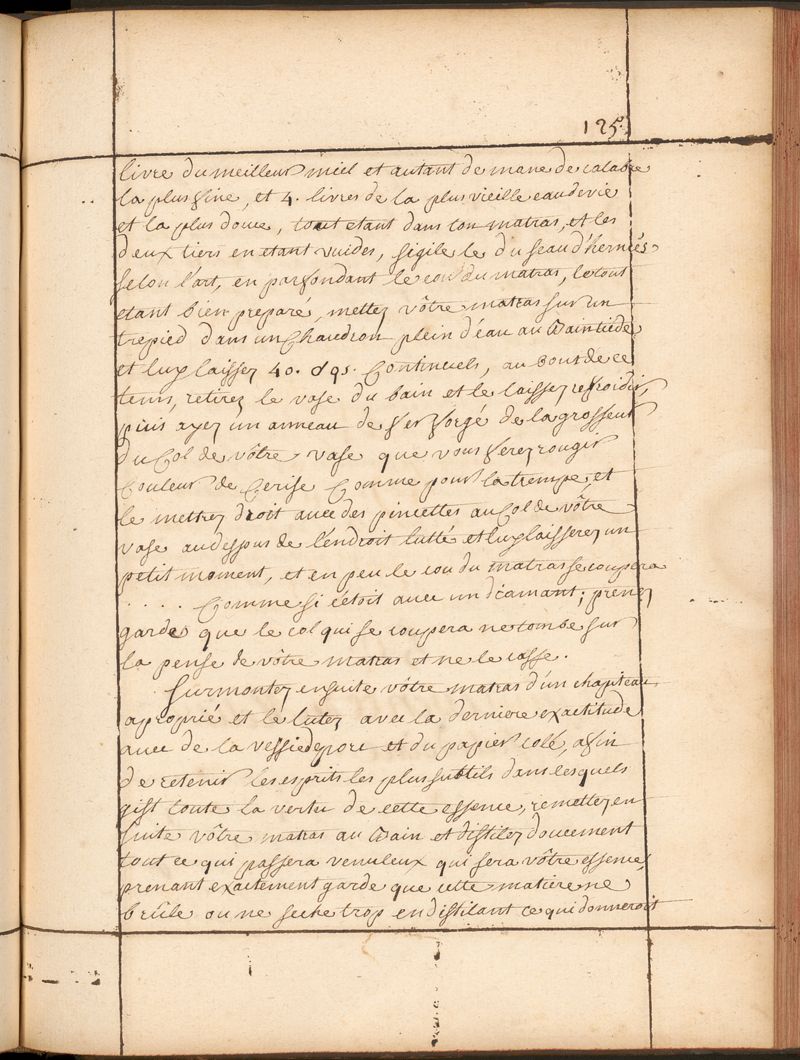 125.
livre du meilleur miel et autant de mane de calabre
la plus fine, et 4. livres de la plus vieille eau de vie
et la plus douce, tout etant dans ton matras, et les
deux tiers en etant vuides, sigile le du seau d'hermés
selon l'art, en parfondant le cou du matras, le tout
etant bien preparé, mettez vôtre matras sur un
trepied dans un Chaudron plein d'eau au Bain tiede
et luy laissez 40. Continuels, au bout de ce
tems, retirez le vase du bain et le laissez refroidir,
puis ayez un anneau de fer forgé de la grosseur
du Col de vôtre vase que vous ferez rougir
Couleur de Cerise Comme pour la trempe, et
le mettrez droit avec des pincettes au Col de vôtre
vase au dessus de l'endroit lutté et luy laisserez un
petit moment, et en peu le cou du matras se coupera
. . . . Comme si c'étoit avec un diamant; prenez
garde que le col qui se coupera ne tombe sur
la pense de vôtre matras et ne le casse.
Surmontez ensuite vôtre matras d'un chapiteau
aproprié et le lutez avec la derniere exactitude
avec de la vessie de porc et du papier colé, afin
de retenir les esprits les plus subtils dans lesquels
gist toute la vertu de cette essence, remettez en
suite vôtre matras au Bain et distilez doucement
tout ce qui passera venuleux qui sera vôtre essence,
prenant exactement garde que cette matiere ne
brûle ou ne seche trop en distilant ce qui donneroit